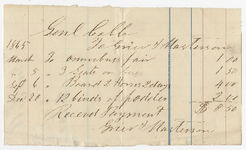 Genl Cobb
To Grier & Masterson
1865
March To omnibus fair 1 00
" 5 " 3 Seats on 1 50
Sept 6 " Board 2 Horses 2 days 4 00
Dec 20 " 12 binds of fodder 2 00
$ 8 50
Received Payment
Grier & Masterson